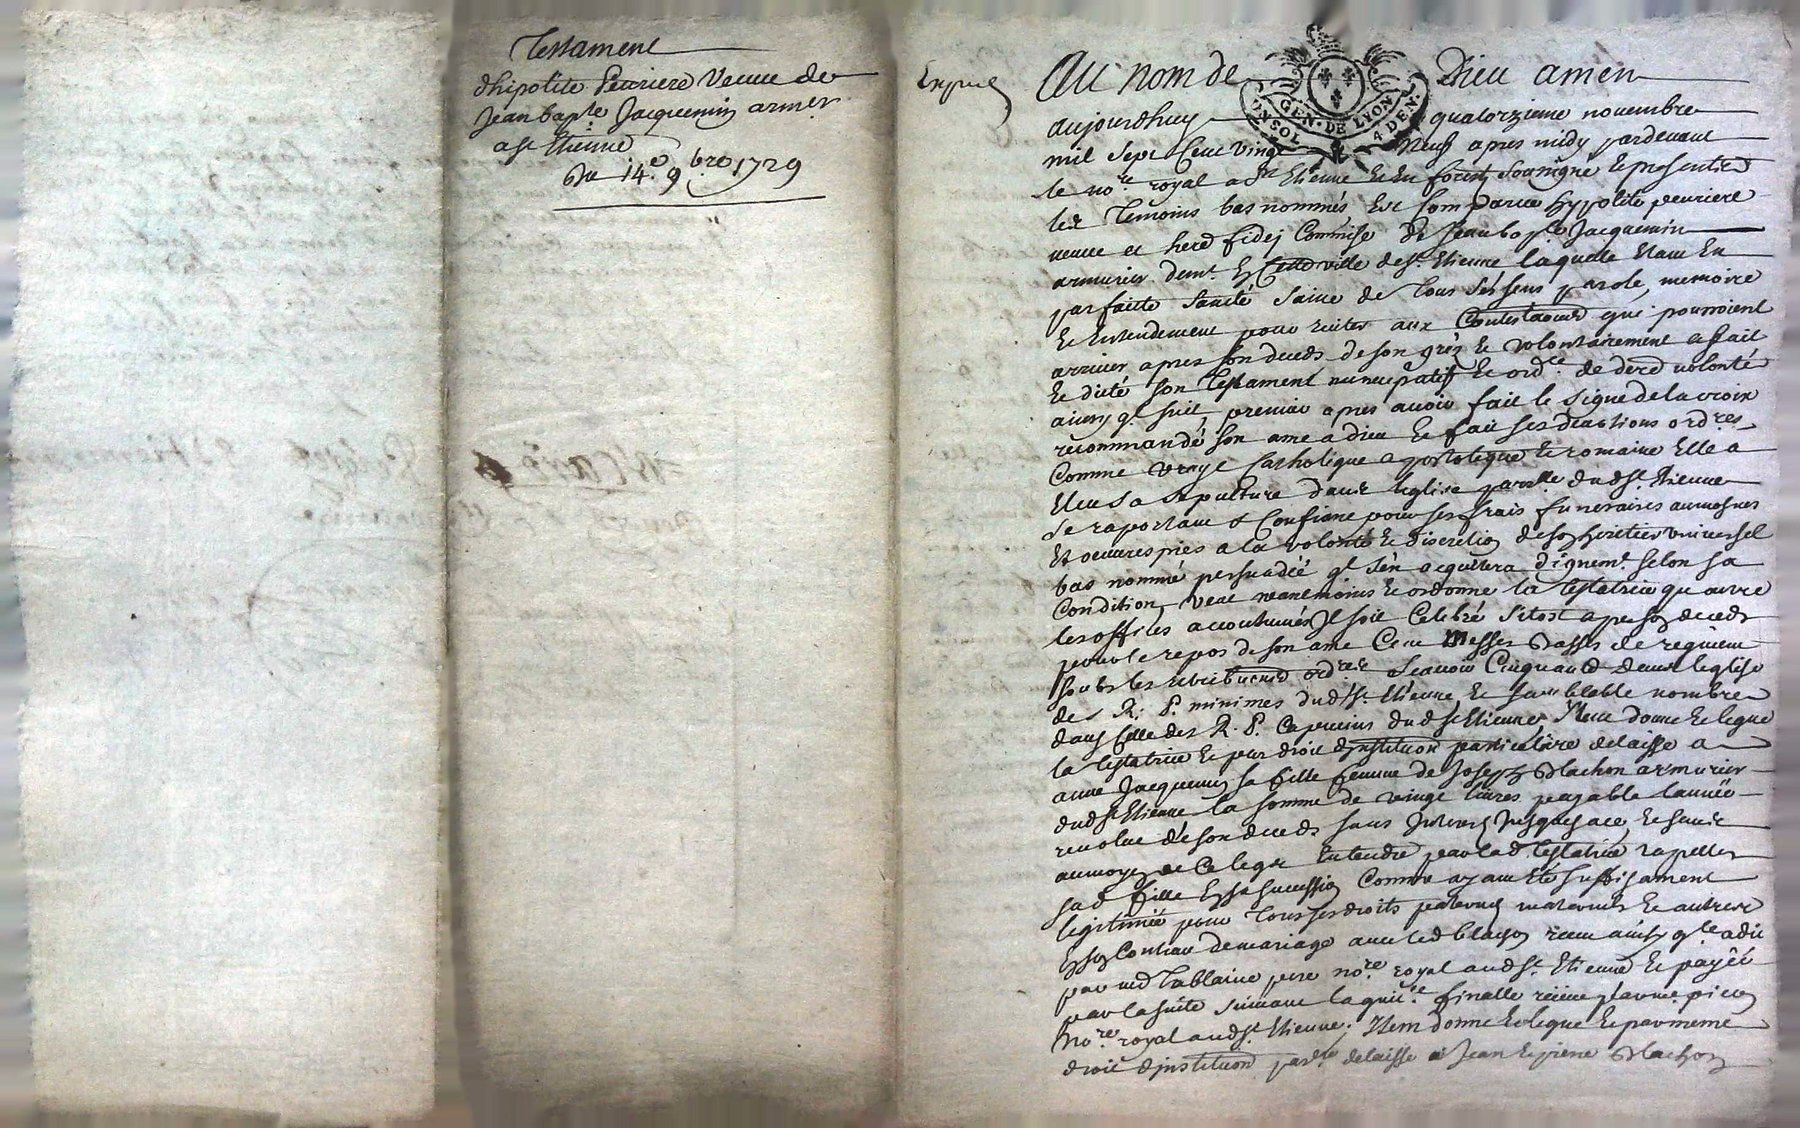 Testament
dhipolite Peuriere Veuve de
Jean bapte Jacquemin armer
a st Etienne
Du 14.e 9bre 1729
Au nom de Dieu amen
GEN. DE LYON
UN SOL 4 DEN.
aujourdhuy quatorzieme novembre
mil sept Cent vingt neuf apres midy pardevant
le nore royal a st Etienne Et En forest Soussigné Et presents
les Temoins bas nommés Est Comparue hypolite peuriere
veuve et hered fidej Commise de Jean bapte Jacquemin
armurier demt En Cette ville de st Etienne laquelle Etant En
parfaite Santé Saine de tous Ses sens parole, memoire
Et Entendement pour Eviter aux Contestaons qui pourroient
arriver apres Son deceds de Son gréz Et volontairement a fait
Et dicté Son Testament nuncupatif Et ordce de derre volonté
ainsy ql suit, premier apres avoir fait le Signe de la croix
recommandé Son ame a dieu Et fait Ses deaotions ordres
Comme vraye Catholique apostolique Et romaine Elle a
Eleu Sa Sepulture dans leglise paroalle dud st Etienne
Se raportant & Confiant pour Ses frais funeraires aumosnes
Et oeuvres pies a la volonté Et discretion de Son heritier universel
bas nommé persuadée ql Sen acquitera dignemt selon Sa
Condition, veut neanmoins Et ordonne la testatrice qu outre
les offices accoutumés Jl soit Celebré Sitost apres Son deceds
pour le repos de Son ame Cent Messes basses de requiem
Soubs les retributions ordres Scavoir Cinquante dans leglise
des R. P. minimes dud st Etienne Et Semblable nombre
dans Celle des R. P. Capucins dud st Etienne. Item donne Et legue
la testatrice Et par droit dinstitution particuliere delaisse a
anne Jacquemin Sa fille femme de Joseph Blachon armurier
dud st Etienne la somme de vingt livres payable lannée
revolue de Son deceds Sans Jnterest Jusques a ce, Et Sans
au moyen de Ce legat Entendre par lad testatrice rapeller
Sad fille En Sa Succession Comme ayant Eté Suffisament
legitimée pour Tous Ses droits paternels maternels Et autres
En Son Contrat de mariage avec led blachon receu ainsy qle a dit
par me Tablaine pere nore royal aud st Etienne Et payée
par la suite Suivant la quitce finalle receue par me picon
nore royal aud st Etienne. Item donne Et legue Et par meme
droit dinstitution parre delaisse a Jean Et pierre Blachon